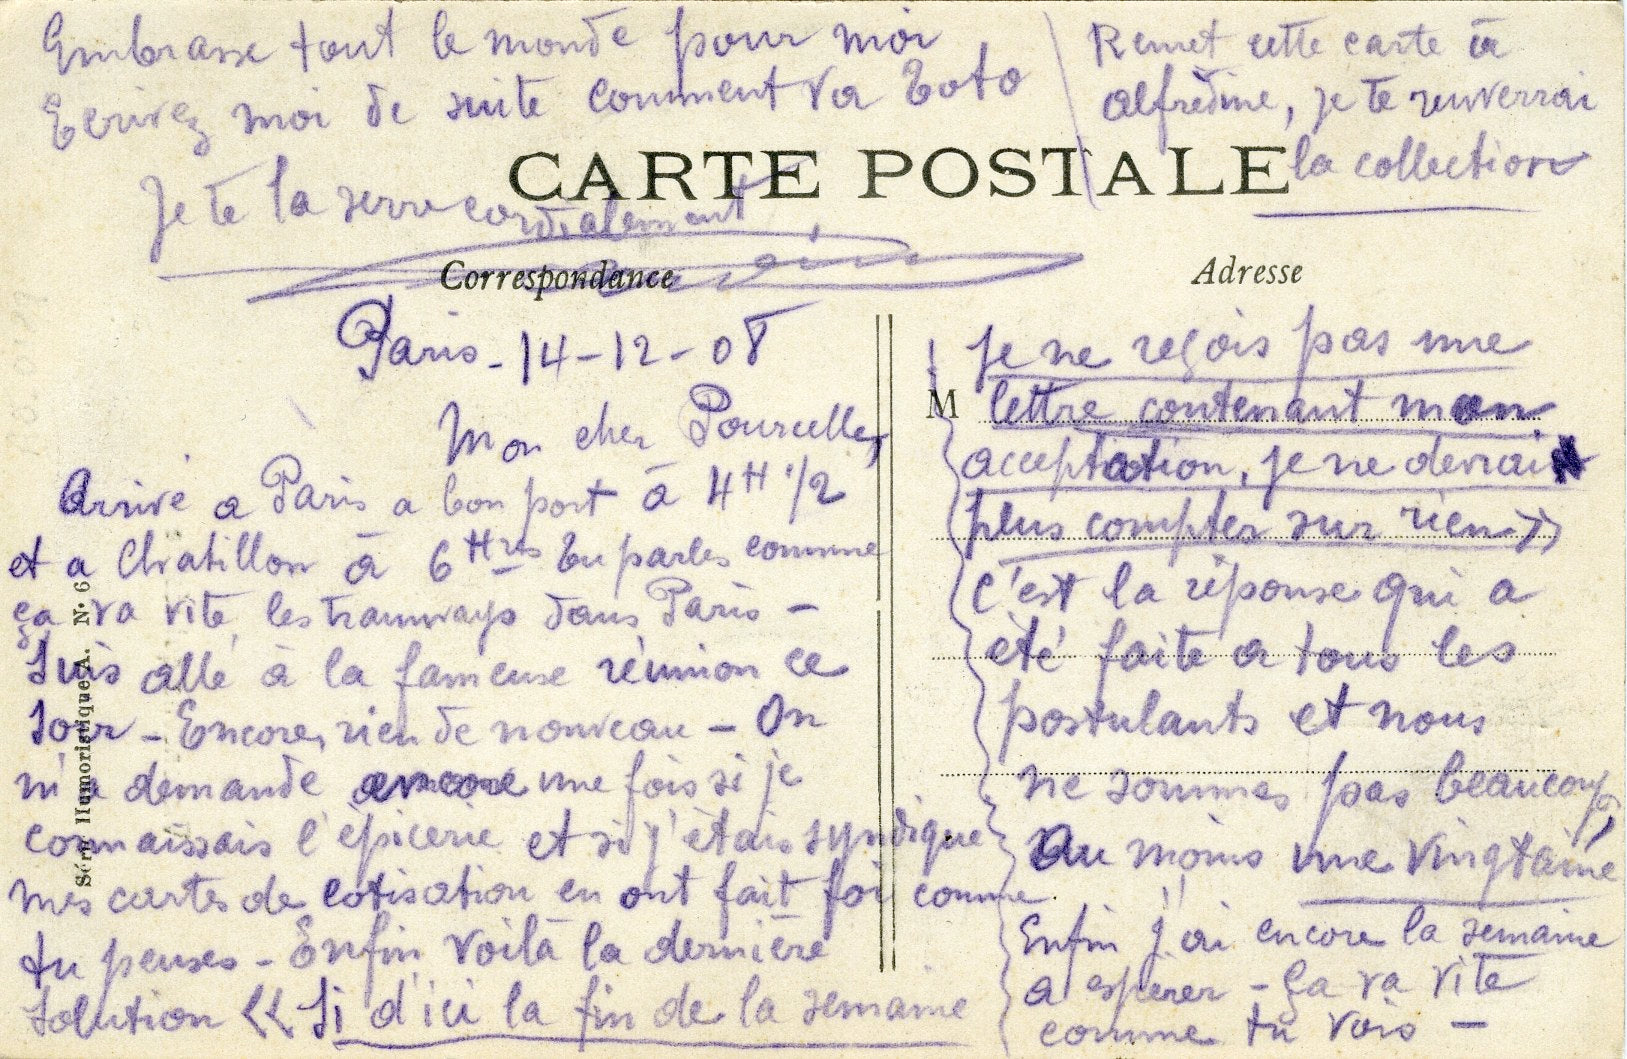 Embrasse tout le monde pour moi
Ecrivez moi de suite comment va Toto
Je te la serre cordialement
Remet cette carte à
alfrédine, je te renverrai
la collection
CARTE POSTALE
Correspondance
Adresse
Paris - 14-12-08
Mon cher Pourcelle,
Arrivé a Paris a bon port à 4H 1/2
et a Chatillon à 6Hres Tu parles comme
ça va vite les tramways dans Paris -
Suis allé à la fameuse réunion ce
Soir - Encore, rien de nouveau - On
m'a demandé encore une fois si je
connaissais l'épicerie et si j'étais syndiqué
mes cartes de cotisation en ont fait foi comme
tu penses - Enfin voilà la dernière
Solution << Si d'ici la fin de la semaine
je ne reçois pas une
M
lettre contenant mon
acceptation, je ne devrai
plus compter sur rien >>
C'est la réponse qui a
été faite a tous les
postulants et nous
ne sommes pas beaucoup,
Au moins une vingtaine
Enfin j'ai encore la semaine
a espérer - ça va vite
comme tu vois -
Série Humoristique A. N° 6